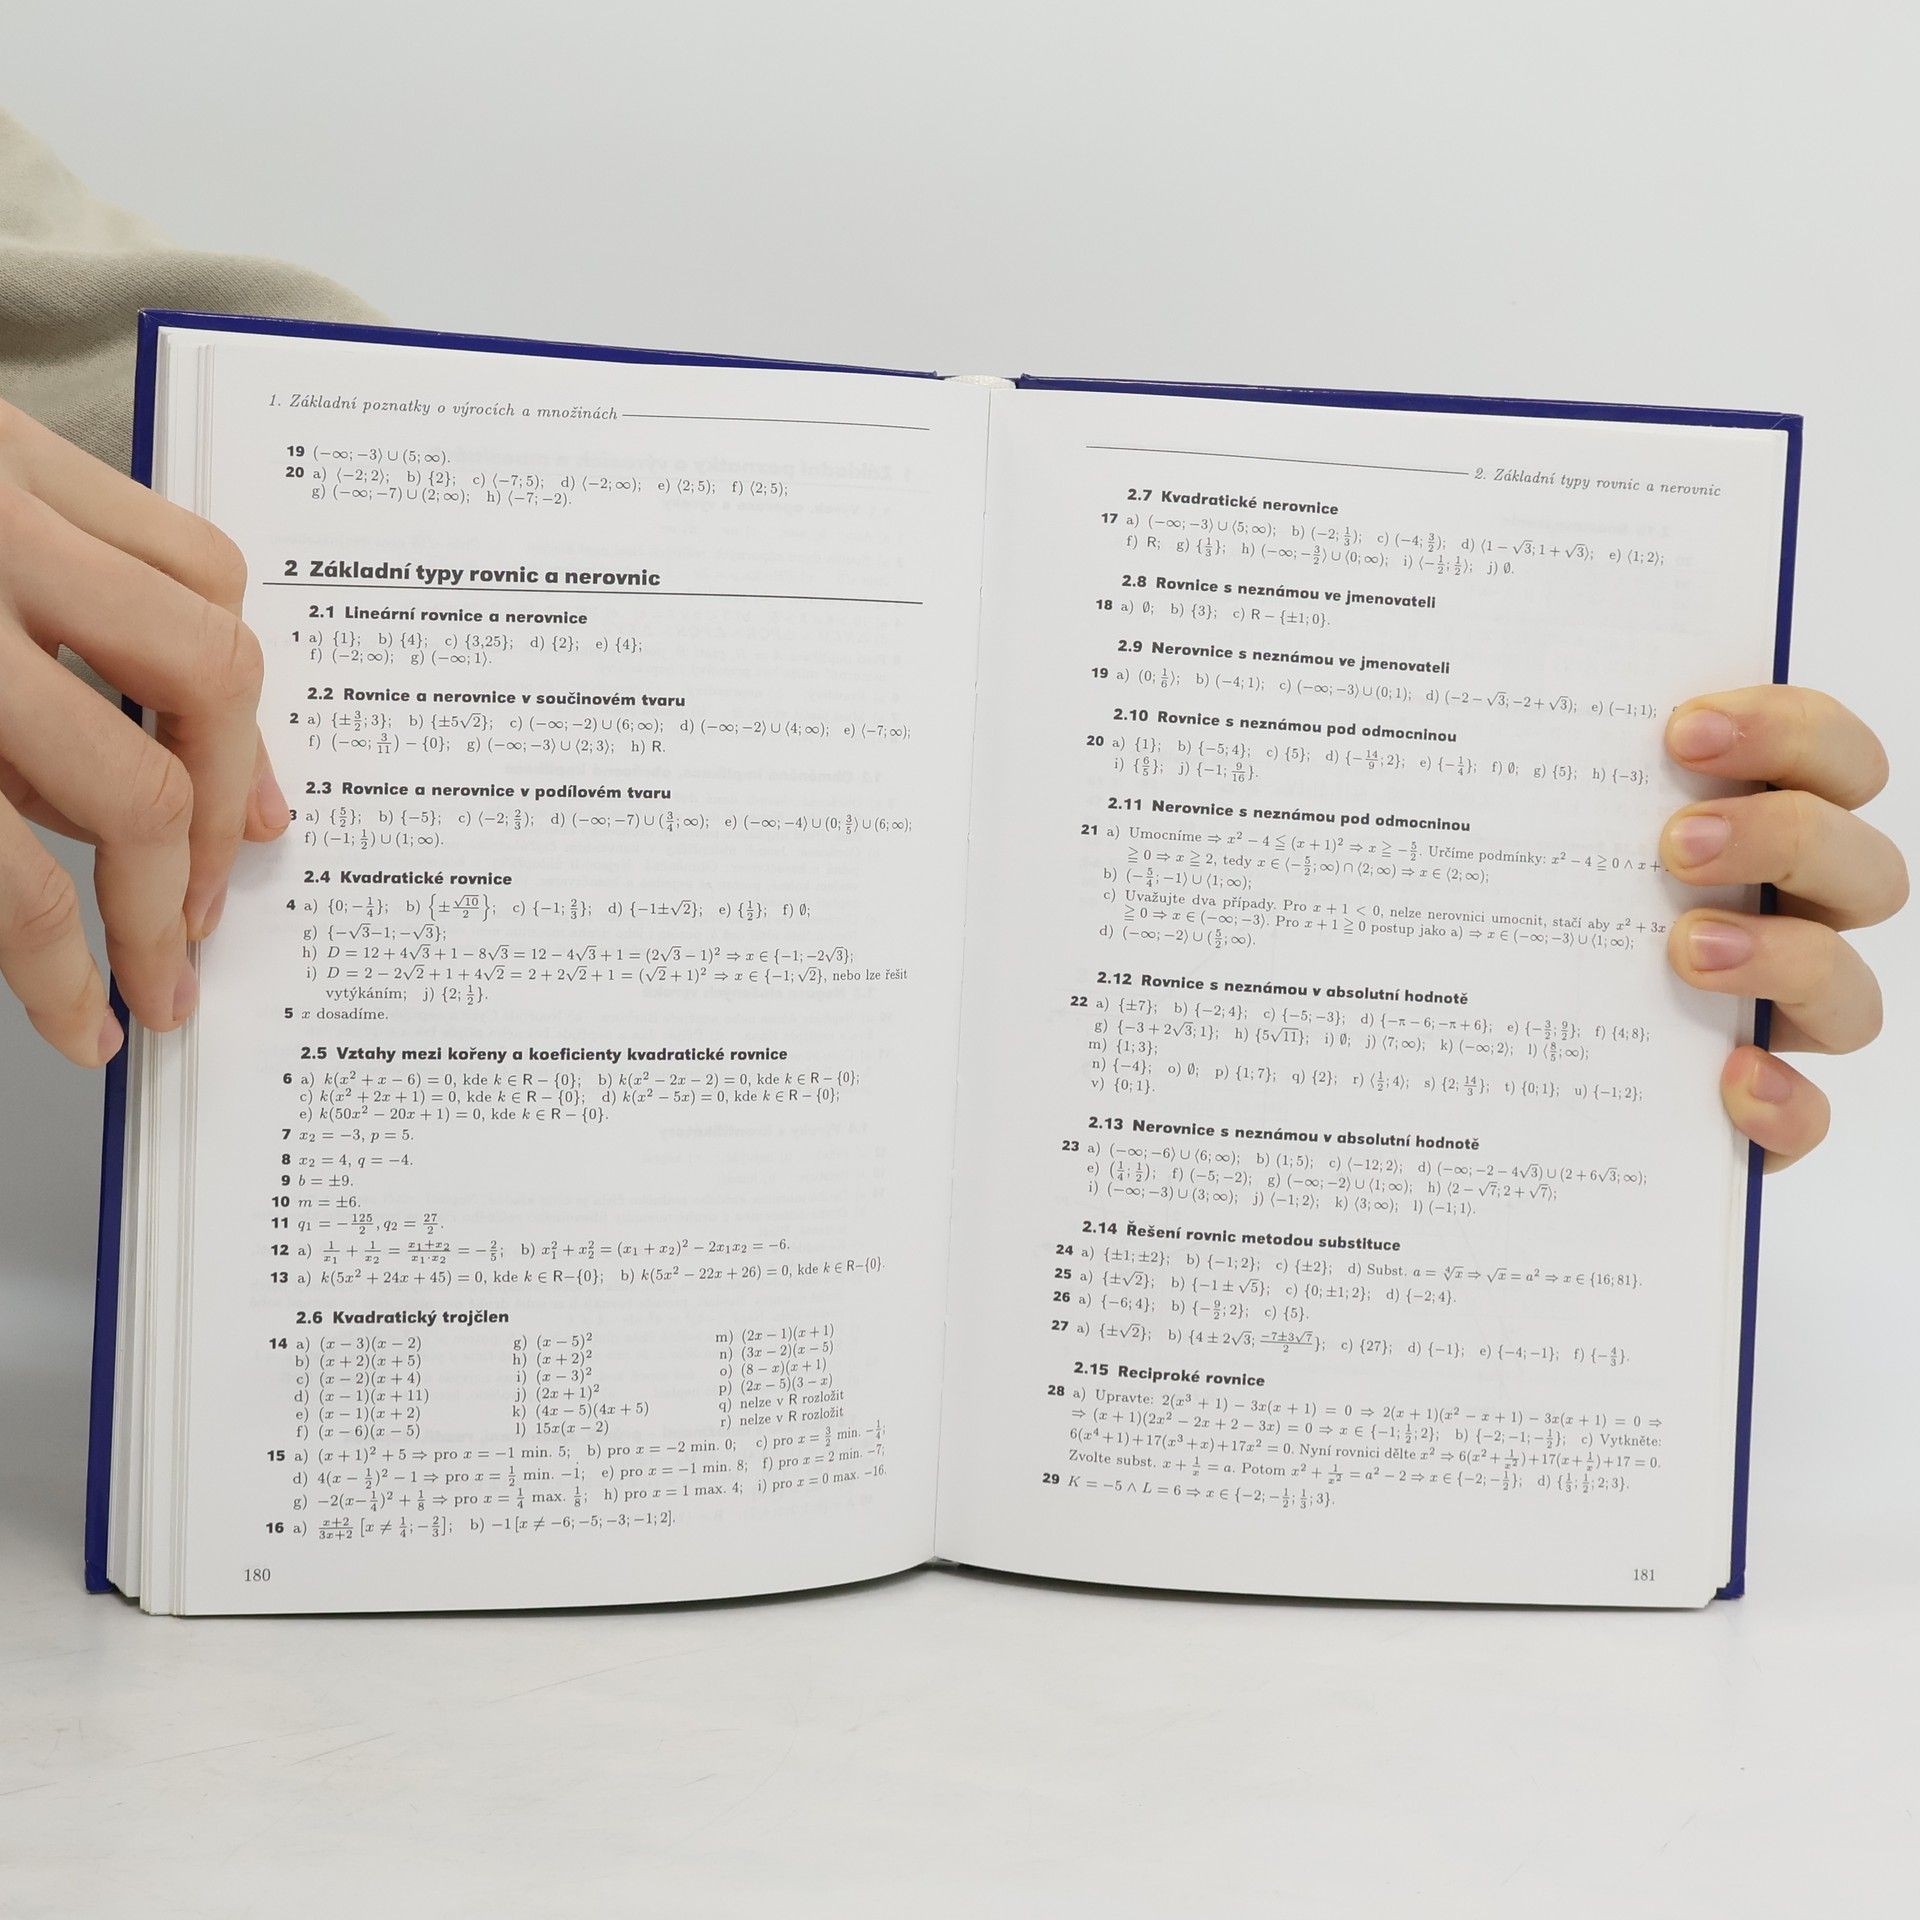 1. Základní poznatky o výrocích a množinách
19 (−∞; −3⟩ ∪ (5; ∞).
20 a) ⟨−2; 2⟩; b) {2}; c) ⟨−7; 5⟩; d) ⟨−2; ∞); e) ⟨2; 5⟩; f) ⟨2; 5);
g) (−∞; −7) ∪ (2; ∞); h) ⟨−7; −2).
2 Základní typy rovnic a nerovnic
2.1 Lineární rovnice a nerovnice
1 a) {1}; b) {4}; c) {3,25}; d) {2}; e) {4};
f) (−2; ∞); g) (−∞; 1⟩.
2.2 Rovnice a nerovnice v součinovém tvaru
2 a) {±3/2; 3}; b) {±5√2}; c) (−∞; −2) ∪ (6; ∞); d) (−∞; −2⟩ ∪ ⟨4; ∞); e) ⟨−7; ∞);
f) (−∞; 3/11) − {0}; g) (−∞; −3⟩ ∪ ⟨2; 3⟩; h) R.
2.3 Rovnice a nerovnice v podílovém tvaru
3 a) {5/2}; b) {−5}; c) ⟨−2; 2/3); d) (−∞; −7) ∪ (3/4; ∞); e) (−∞; −4⟩ ∪ (0; 3/5⟩ ∪ (6; ∞);
f) (−1; 1/2) ∪ (1; ∞).
2.4 Kvadratické rovnice
4 a) {0; −1/4}; b) {±√10/2}; c) {−1; 2/3}; d) {−1±√2}; e) {1/2}; f) ∅;
g) {−√3−1; −√3};
h) D = 12 + 4√3 + 1 − 8√3 = 12 − 4√3 + 1 = (2√3 − 1)² ⇒ x ∈ {−1; −2√3};
i) D = 2 − 2√2 + 1 + 4√2 = 2 + 2√2 + 1 = (√2 + 1)² ⇒ x ∈ {−1; √2}, nebo lze řešit
vytýkáním; j) {2; 1/2}.
5 x dosadíme.
2.5 Vztahy mezi kořeny a koeficienty kvadratické rovnice
6 a) k(x² + x − 6) = 0, kde k ∈ R − {0}; b) k(x² − 2x − 2) = 0, kde k ∈ R − {0};
c) k(x² + 2x + 1) = 0, kde k ∈ R − {0}; d) k(x² − 5x) = 0, kde k ∈ R − {0};
e) k(50x² − 20x + 1) = 0, kde k ∈ R − {0}.
7 x₂ = −3, p = 5.
8 x₂ = 4, q = −4.
9 b = ±9.
10 m = ±6.
11 q₁ = −125/2, q₂ = 27/2.
12 a) 1/x₁ + 1/x₂ = x₁+x₂/x₁·x₂ = −2/5; b) x₁² + x₂² = (x₁ + x₂)² − 2x₁x₂ = −6.
13 a) k(5x² + 24x + 45) = 0, kde k ∈ R−{0}; b) k(5x² − 22x + 26) = 0, kde k ∈ R−{0}.
2.6 Kvadratický trojčlen
14 a) (x − 3)(x − 2) g) (x − 5)² m) (2x − 1)(x + 1)
b) (x + 2)(x + 5) h) (x + 2)² n) (3x − 2)(x − 5)
c) (x − 2)(x + 4) i) (x − 3)² o) (8 − x)(x + 1)
d) (x − 1)(x + 11) j) (2x + 1)² p) (2x − 5)(3 − x)
e) (x − 1)(x + 2) k) (4x − 5)(4x + 5) q) nelze v R rozložit
f) (x − 6)(x − 5) l) 15x(x − 2) r) nelze v R rozložit
15 a) (x + 1)² + 5 ⇒ pro x = −1 min. 5; b) pro x = −2 min. 0; c) pro x = 3/2 min. −1/4;
d) 4(x − 1/2)² − 1 ⇒ pro x = 1/2 min. −1; e) pro x = −1 min. 8; f) pro x = 2 min. −7;
g) −2(x−1/4)² + 1/8 ⇒ pro x = 1/4 max. 1/8; h) pro x = 1 max. 4; i) pro x = 0 max. −16.
16 a) x+2/3x+2 [x ≠ 1/4; −2/3]; b) −1 [x ≠ −6; −5; −3; −1; 2].
180
2. Základní typy rovnic a nerovnic
2.7 Kvadratické nerovnice
17 a) (−∞; −3⟩ ∪ ⟨5; ∞); b) (−2; 1/3); c) (−4; 3/2); d) ⟨1 − √3; 1 + √3⟩; e) ⟨1; 2⟩;
f) R; g) {1/3}; h) (−∞; −3/2⟩ ∪ ⟨0; ∞); i) ⟨−1/2; 1/2⟩; j) ∅.
2.8 Rovnice s neznámou ve jmenovateli
18 a) ∅; b) {3}; c) R − {±1; 0}.
2.9 Nerovnice s neznámou ve jmenovateli
19 a) (0; 1/6); b) (−4; 1); c) (−∞; −3) ∪ (0; 1); d) (−2 − √3; −2 + √3); e) (−1; 1);
2.10 Rovnice s neznámou pod odmocninou
20 a) {1}; b) {−5; 4}; c) {5}; d) {−14/9; 2}; e) {−1/4}; f) ∅; g) {5}; h) {−3};
i) {6/5}; j) {−1; 9/16}.
2.11 Nerovnice s neznámou pod odmocninou
21 a) Umocníme ⇒ x² − 4 ≦ (x + 1)² ⇒ x ≧ −5/2. Určíme podmínky: x² − 4 ≧ 0 ∧ x +
≧ 0 ⇒ x ≧ 2, tedy x ∈ ⟨−5/2; ∞) ∩ ⟨2; ∞) ⇒ x ∈ ⟨2; ∞);
b) (−5/4; −1⟩ ∪ ⟨1; ∞);
c) Uvažujte dva případy. Pro x + 1 < 0, nelze nerovnici umocnit, stačí aby x² + 3x
≧ 0 ⇒ x ∈ (−∞; −3⟩. Pro x + 1 ≧ 0 postup jako a) ⇒ x ∈ (−∞; −3⟩ ∪ ⟨1; ∞);
d) (−∞; −2⟩ ∪ (5/2; ∞).
2.12 Rovnice s neznámou v absolutní hodnotě
22 a) {±7}; b) {−2; 4}; c) {−5; −3}; d) {−π − 6; −π + 6}; e) {−3/2; 9/2}; f) {4; 8};
g) {−3 + 2√3; 1}; h) {5√11}; i) ∅; j) ⟨7; ∞); k) (−∞; 2⟩; l) ⟨8/5; ∞);
m) {1; 3};
n) {−4}; o) ∅; p) {1; 7}; q) {2}; r) ⟨1/2; 4⟩; s) {2; 14/3}; t) {0; 1}; u) {−1; 2};
v) {0; 1}.
2.13 Nerovnice s neznámou v absolutní hodnotě
23 a) (−∞; −6⟩ ∪ ⟨6; ∞); b) (1; 5); c) ⟨−12; 2⟩; d) (−∞; −2 − 4√3) ∪ (2 + 6√3; ∞);
e) (1/4; 1/2); f) (−5; −2); g) (−∞; −2⟩ ∪ ⟨1; ∞); h) ⟨2 − √7; 2 + √7⟩;
i) (−∞; −3) ∪ (3; ∞); j) ⟨−1; 2⟩; k) ⟨3; ∞); l) (−1; 1).
2.14 Řešení rovnic metodou substituce
24 a) {±1; ±2}; b) {−1; 2}; c) {±2}; d) Subst. a = ∜x ⇒ √x = a² ⇒ x ∈ {16; 81}.
25 a) {±√2}; b) {−1 ± √5}; c) {0; ±1; 2}; d) {−2; 4}.
26 a) {−6; 4}; b) {−9/2; 2}; c) {5}.
27 a) {±√2}; b) {4 ± 2√3; −7±3√7/2}; c) {27}; d) {−1}; e) {−4; −1}; f) {−4/3}.
2.15 Reciproké rovnice
28 a) Upravte: 2(x³ + 1) − 3x(x + 1) = 0 ⇒ 2(x + 1)(x² − x + 1) − 3x(x + 1) = 0 ⇒
⇒ (x + 1)(2x² − 2x + 2 − 3x) = 0 ⇒ x ∈ {−1; 1/2; 2}; b) {−2; −1; −1/2}; c) Vytkněte:
6(x⁴ + 1) + 17(x³ + x) + 17x² = 0. Nyní rovnici dělte x² ⇒ 6(x² + 1/x²) + 17(x + 1/x) + 17 = 0.
Zvolte subst. x + 1/x = a. Potom x² + 1/x² = a² − 2 ⇒ x ∈ {−2; −1/2}; d) {1/3; 1/2; 2; 3}.
29 K = −5 ∧ L = 6 ⇒ x ∈ {−2; −1/2; 1/3; 3}.
181